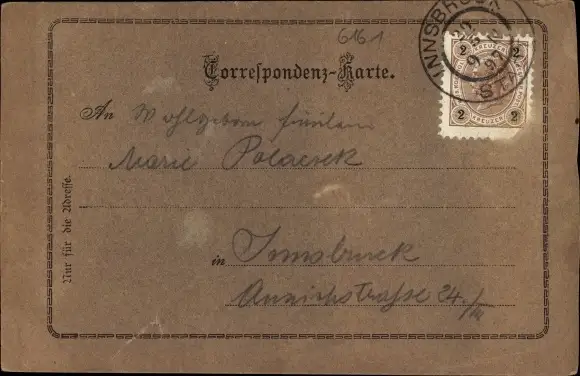 6161
INNSBRUCK
97
STADT
2 KREUZER 2
2 KREUZER 2
Correspondenz-Karte.
An Wohlgeboren Fräulein
Marie Polacsek
in Innsbruck
Anichstraße 24./III
Nur für die Adresse.